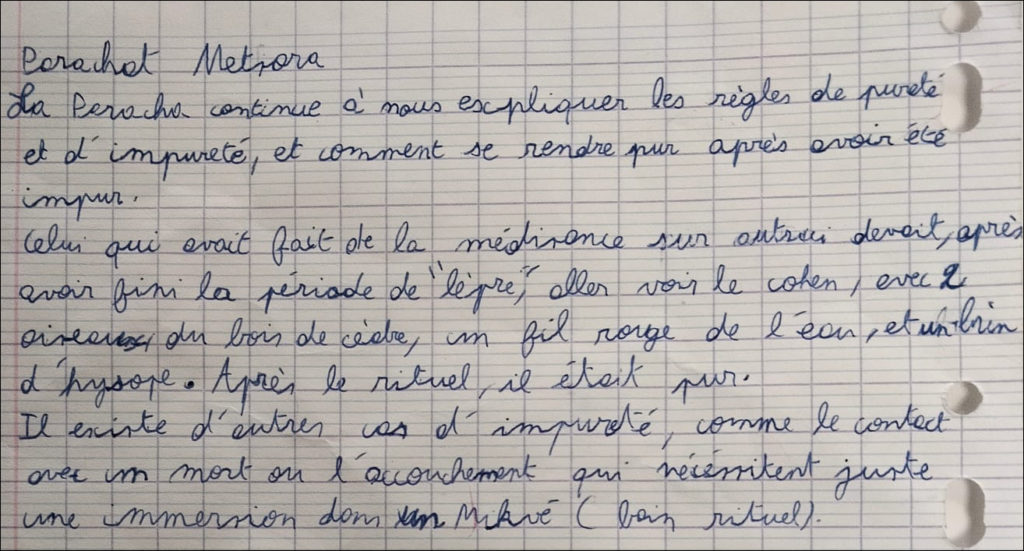 Perachat Metsora
La Peracha continue à nous expliquer les règles de pureté
et d'impureté, et comment se rendre pur après avoir été
impur.
Celui qui avait fait de la médisance sur autrui devait, après
avoir fini la période de "lèpre", aller voir le cohen, avec 2
oiseaux, du bois de cèdre, un fil rouge de l'eau, et un brin
d'hysope. Après le rituel, il était pur.
Il existe d'autres cas d'impureté, comme le contact
avec un mort ou l'accouchement qui nécéssitent juste
une immersion dans un Mikvé (bain rituel).